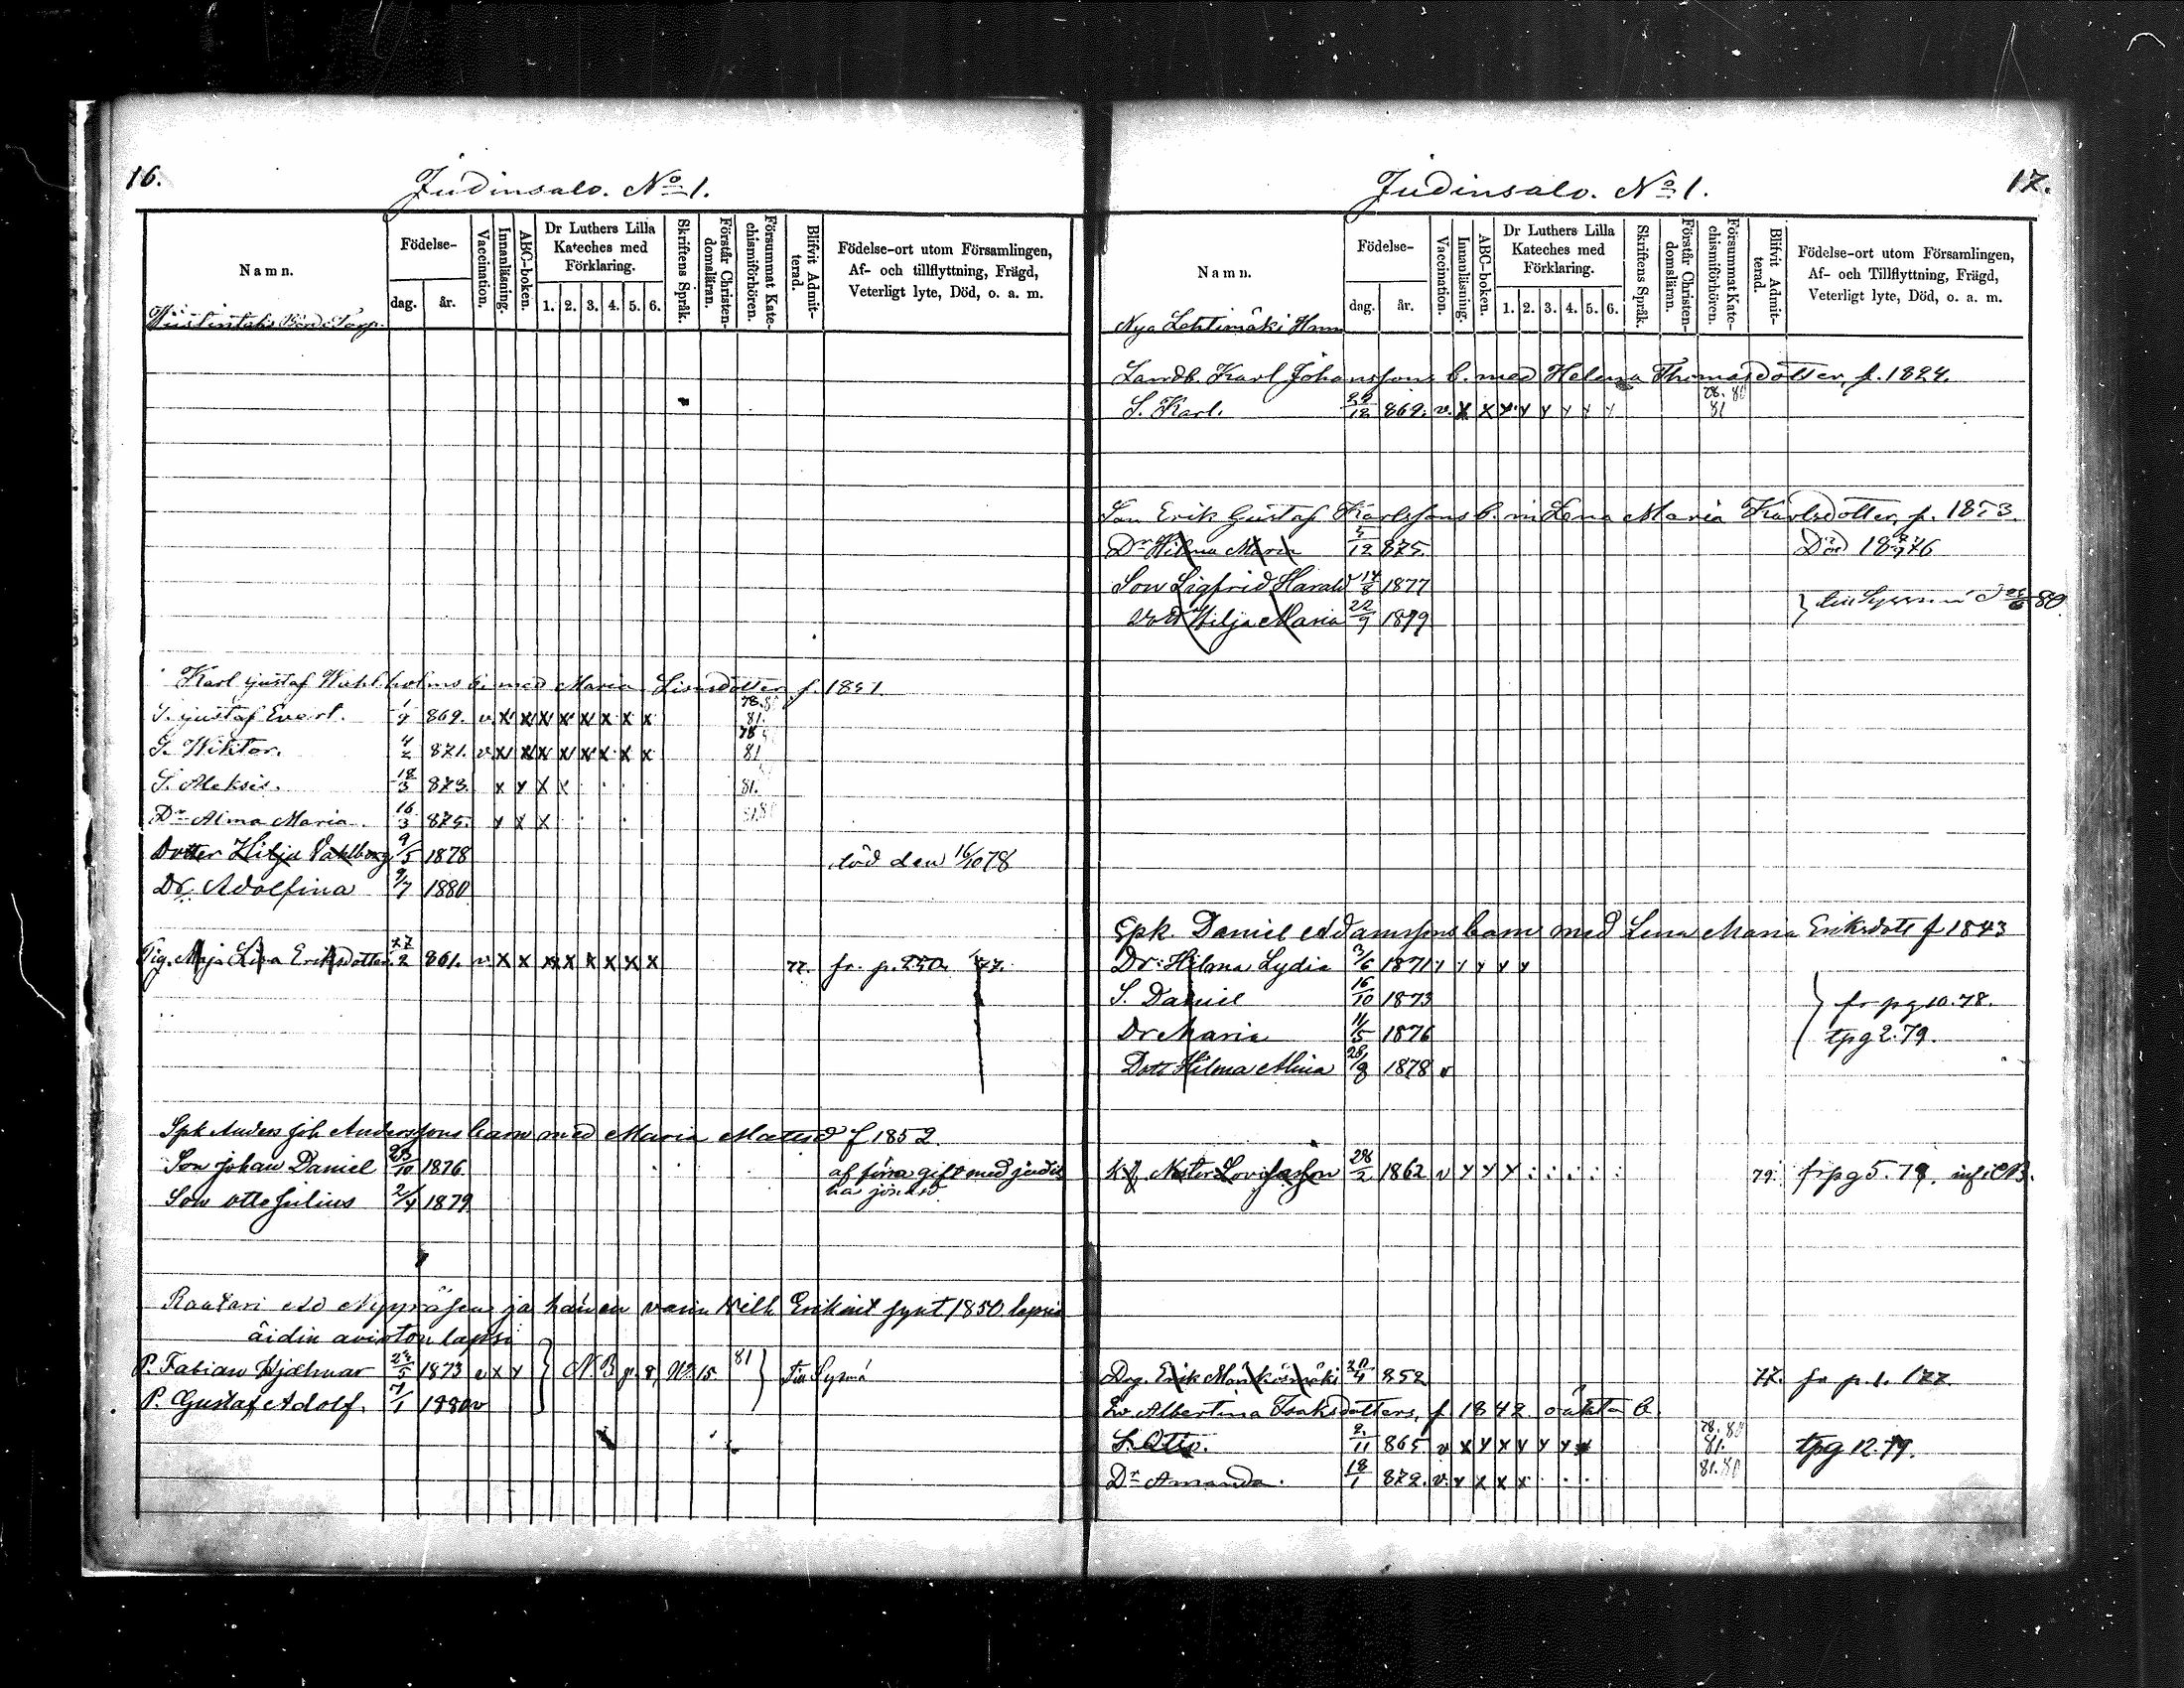 16.
Judinsalo. No 1.
Namn.
Födelse-
dag.
år.
Vaccination.
Innanläsning.
ABC-boken.
Dr Luthers Lilla Kateches med Förklaring.
1. 2. 3. 4. 5. 6.
Skriftens Språk.
Förstår Christen-domsläran.
Försummat Kate-chismiförhören.
Blifvit Admit-terad.
Födelse-ort utom Församlingen,
Af- och tillflyttning, Frägd,
Veterligt lyte, Död, o. a. m.
Karl Gustaf Wahlholms b. med Maria Lisasdotter f. 1851.
S. Gustaf Evert. 1/9 869. v. x x x x x x x x 78. 80 81.
S. Wiktor. 4/2 871. v. x x x x x x x x 78 81
S. Aleksis. 18/3 873. x x x x 81.
Dr Alma Maria. 16/3 875. x x x 81.80
Dotter Hilja Vahlborg 9/5 1878 död den 16/10 78
Dr. Adolfina 9/7 1880
Pig. Maja Lisa Eriksdotter 27/2 861. v. x x x x x x x x 77. fr. p. 250. 77.
Spk Anders Joh Anderssons barn med Maria Mattsd f 1852.
Son Johan Daniel 23/10 1876 af förra gift med
Son Otto Julius 2/4 1879
Raatari Ad Nyyräsen ja hänen vaim Vilh Erikint synt 1850 lapsia
äidin avioton lapsi
P. Fabian Hjalmar 24/5 1873 v x x } N.B p. 8, No 15 81 } Till Sysmä
P. Gustaf Adolf. 7/1 1880 v
17.
Judinsalo. No 1.
Namn.
Födelse-
dag.
år.
Vaccination.
Innanläsning.
ABC-boken.
Dr Luthers Lilla Kateches med Förklaring.
1. 2. 3. 4. 5. 6.
Skriftens Språk.
Förstår Christen-domsläran.
Försummat Kate-chismiförhören.
Blifvit Admit-terad.
Födelse-ort utom Församlingen,
Af- och Tillflyttning, Frägd,
Veterligt lyte, Död, o. a. m.
Nya Lehtimäki Hem
Landb. Karl Johanssons b. med Helena Thomasdotter, f. 1824.
S. Karl. 29/12 869. v. x x x x x x x x 78. 80 81
Son Erik Gustaf Karlssons b. m Lena Maria Karlsdotter, f. 1853.
Dr Hilma Maria 4/12 875. Död 1876
Son Sigfrid Harald 14/8 1877
Dott Hilja Maria 22/9 1879 } till Sysmä d 80
Spk. Daniel Adamssons barn med Lena Maria Eriksdott f 1843
Dr: Hilma Lydia 3/6 1871 x x x x x
S. Daniel 16/10 1873 } fr pg 10. 78.
Dr Maria 11/5 1876 tpg 2. 79.
Dott Hilma Alina 28/8 1878 v
Nestor Lovisasson 28/2 1862 v x x x 79. fr pg 5. 79.
Drg. Erik 20/4 852 77. fr p. 1. 177.
Albertina Isaksdotters, f 1842. oäkta b.
S. Otto. 2/11 865 v x x x x x x 78. 80 81. tpg 12. 79.
Dr Amanda. 18/1 872. v. x x x x 81. 80